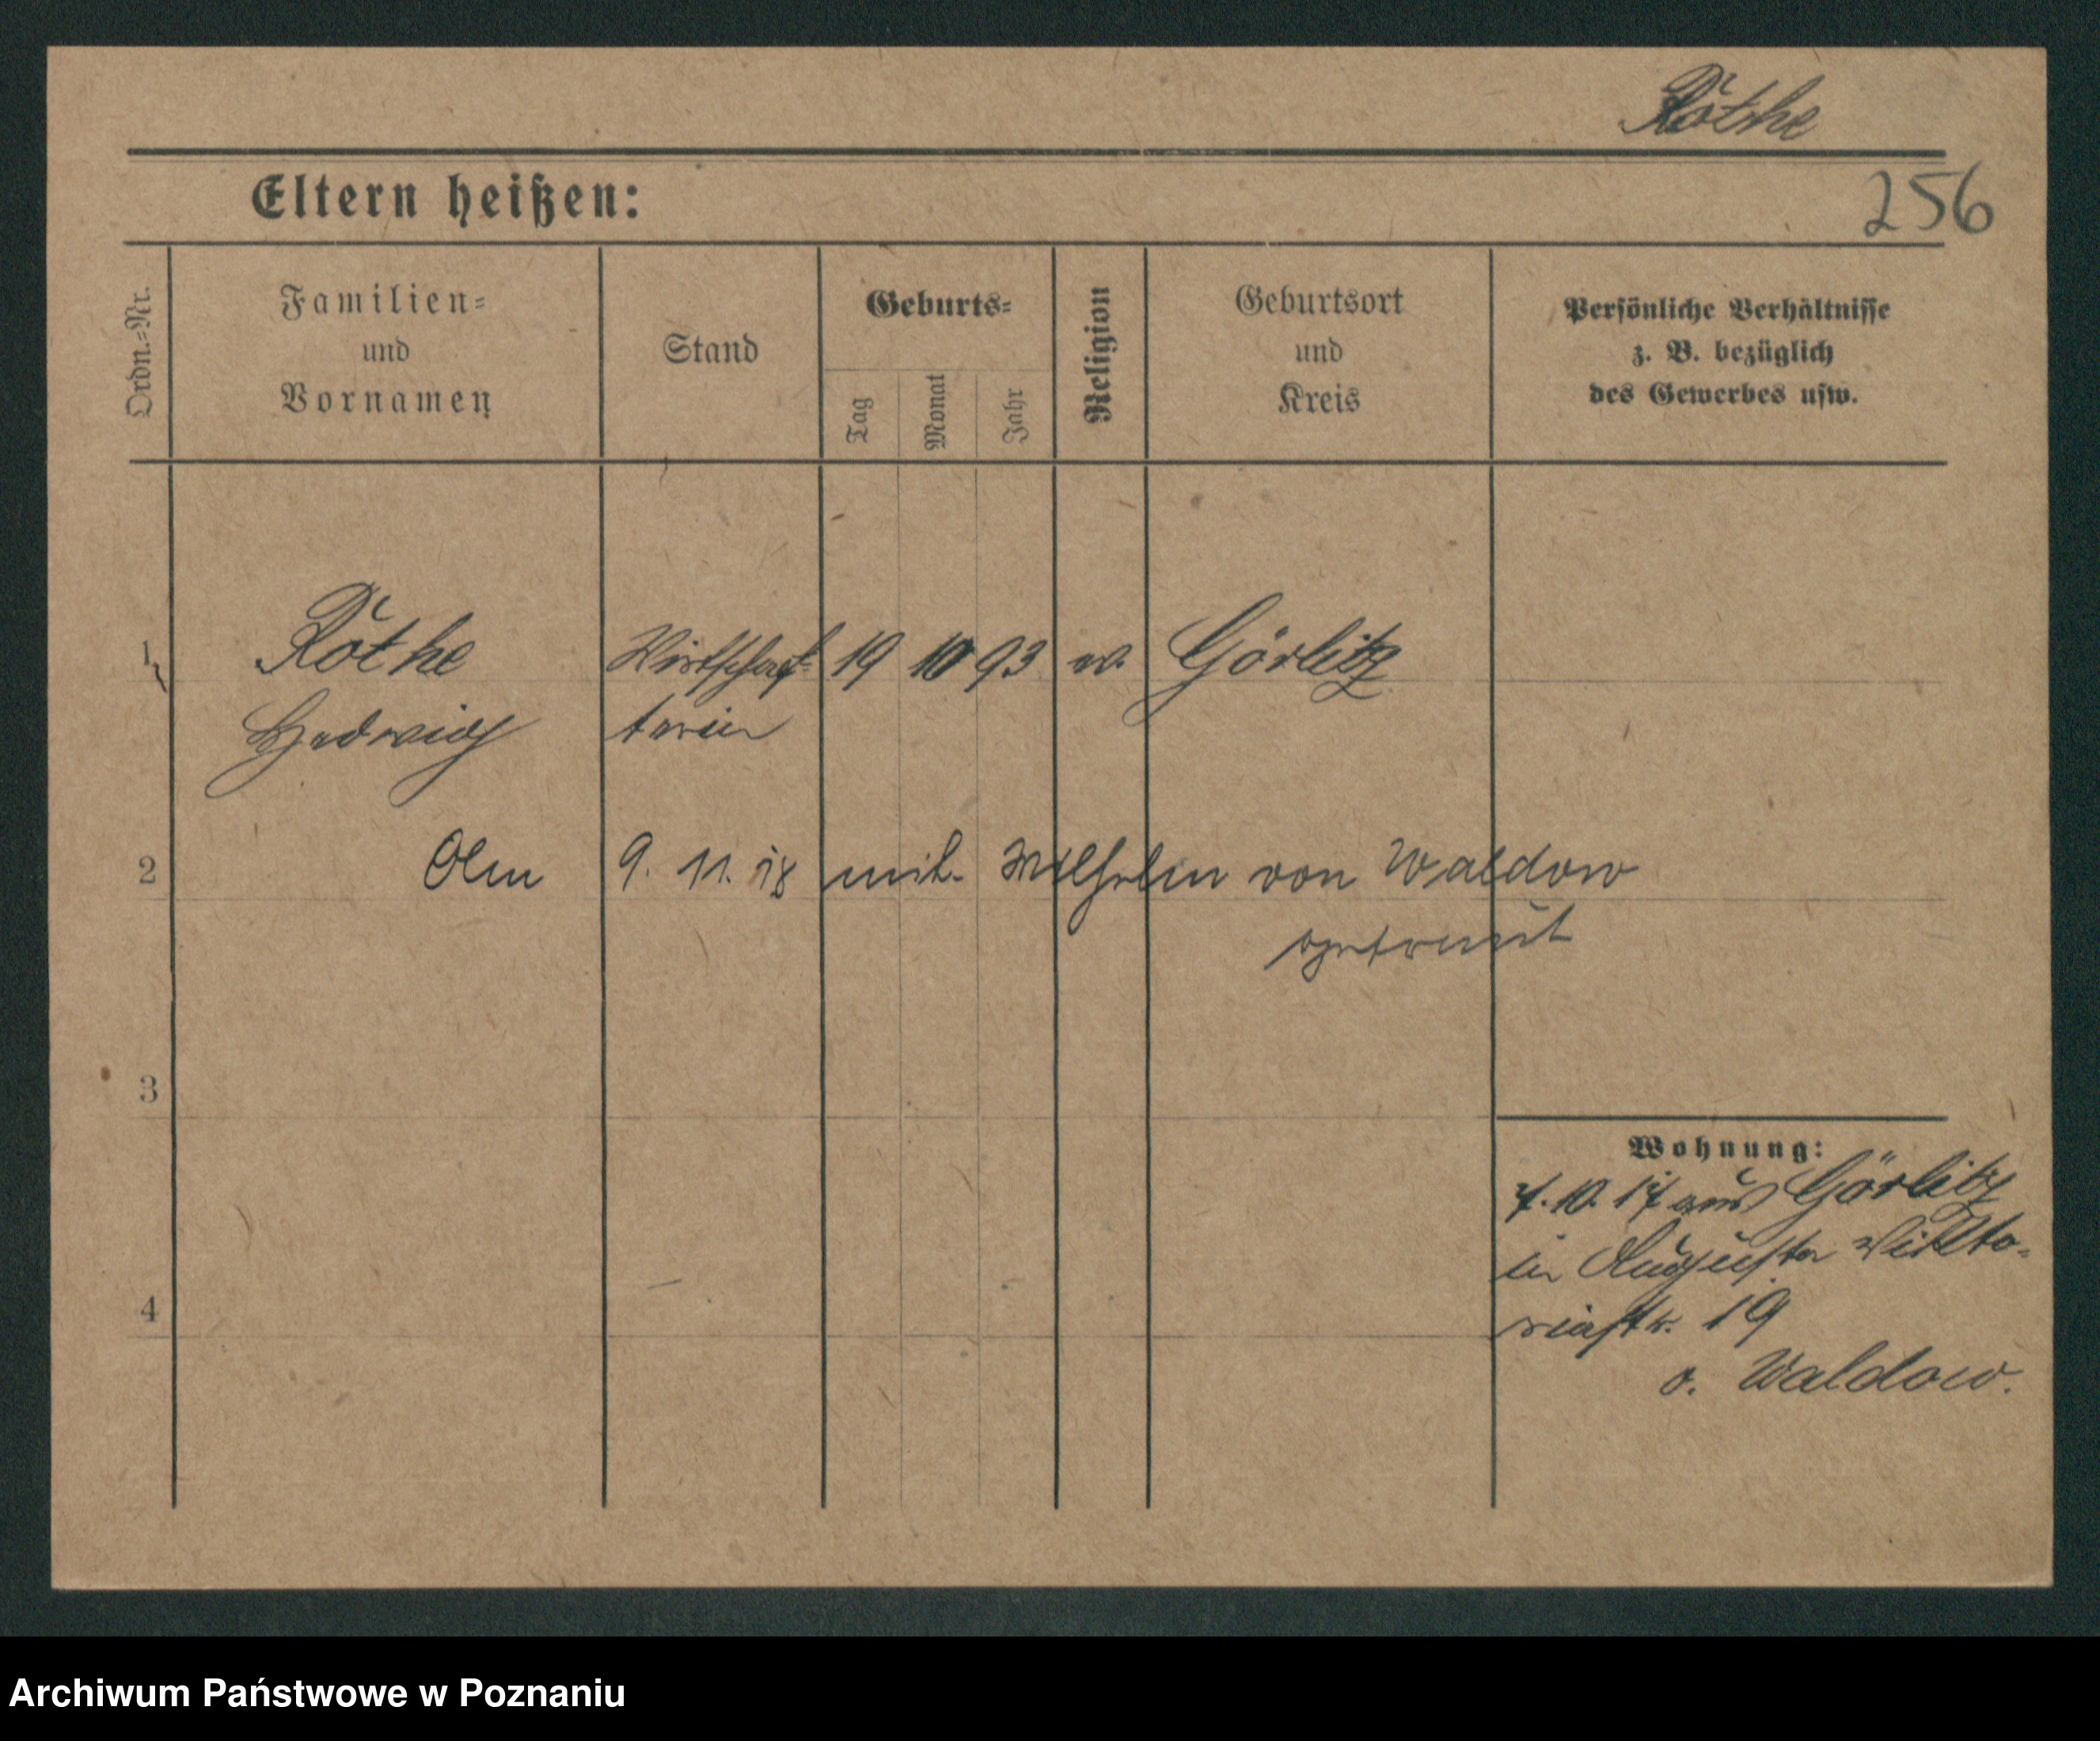 Röthe
256
Eltern heißen:
Ordn.=Nr.
Familien=
und
Vornamen
Stand
Geburts=
Tag
Monat
Jahr
Religion
Geburtsort
und
Kreis
Persönliche Verhältnisse
z. B. bezüglich
des Gewerbes usw.
1 Röthe Wirtschaf- 19 10 93 ev. Görlitz
Hedwig terin
2 Am 9. 11. 18 mit Wilhelm von Waldow
getraut
3
Wohnung:
7. 10. 17 aus Görlitz
in Augusta Vikto-
4
riastr. 19
v. Waldow.
Archiwum Państwowe w Poznaniu